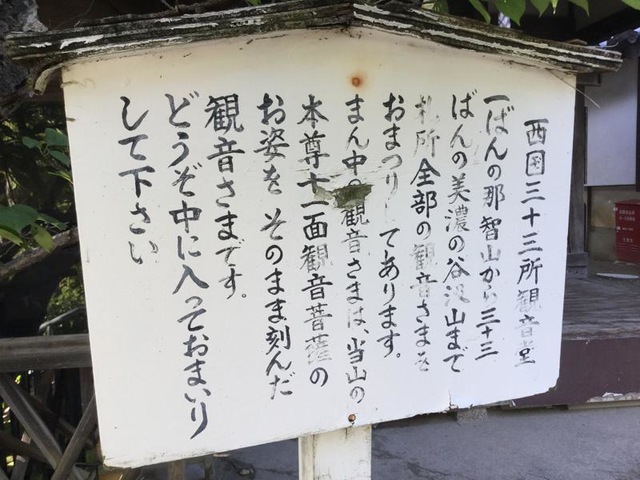 西国三十三所観音堂
一ばんの那智山から三十三
ばんの美濃の谷汲山まで
札所全部の観音さまを
おまつりしてあります。
まん中の観音さまは、当山の
本尊十一面観音菩薩の
お姿をそのまま刻んだ
観音さまです。
どうぞ中に入っておまいり
して下さい